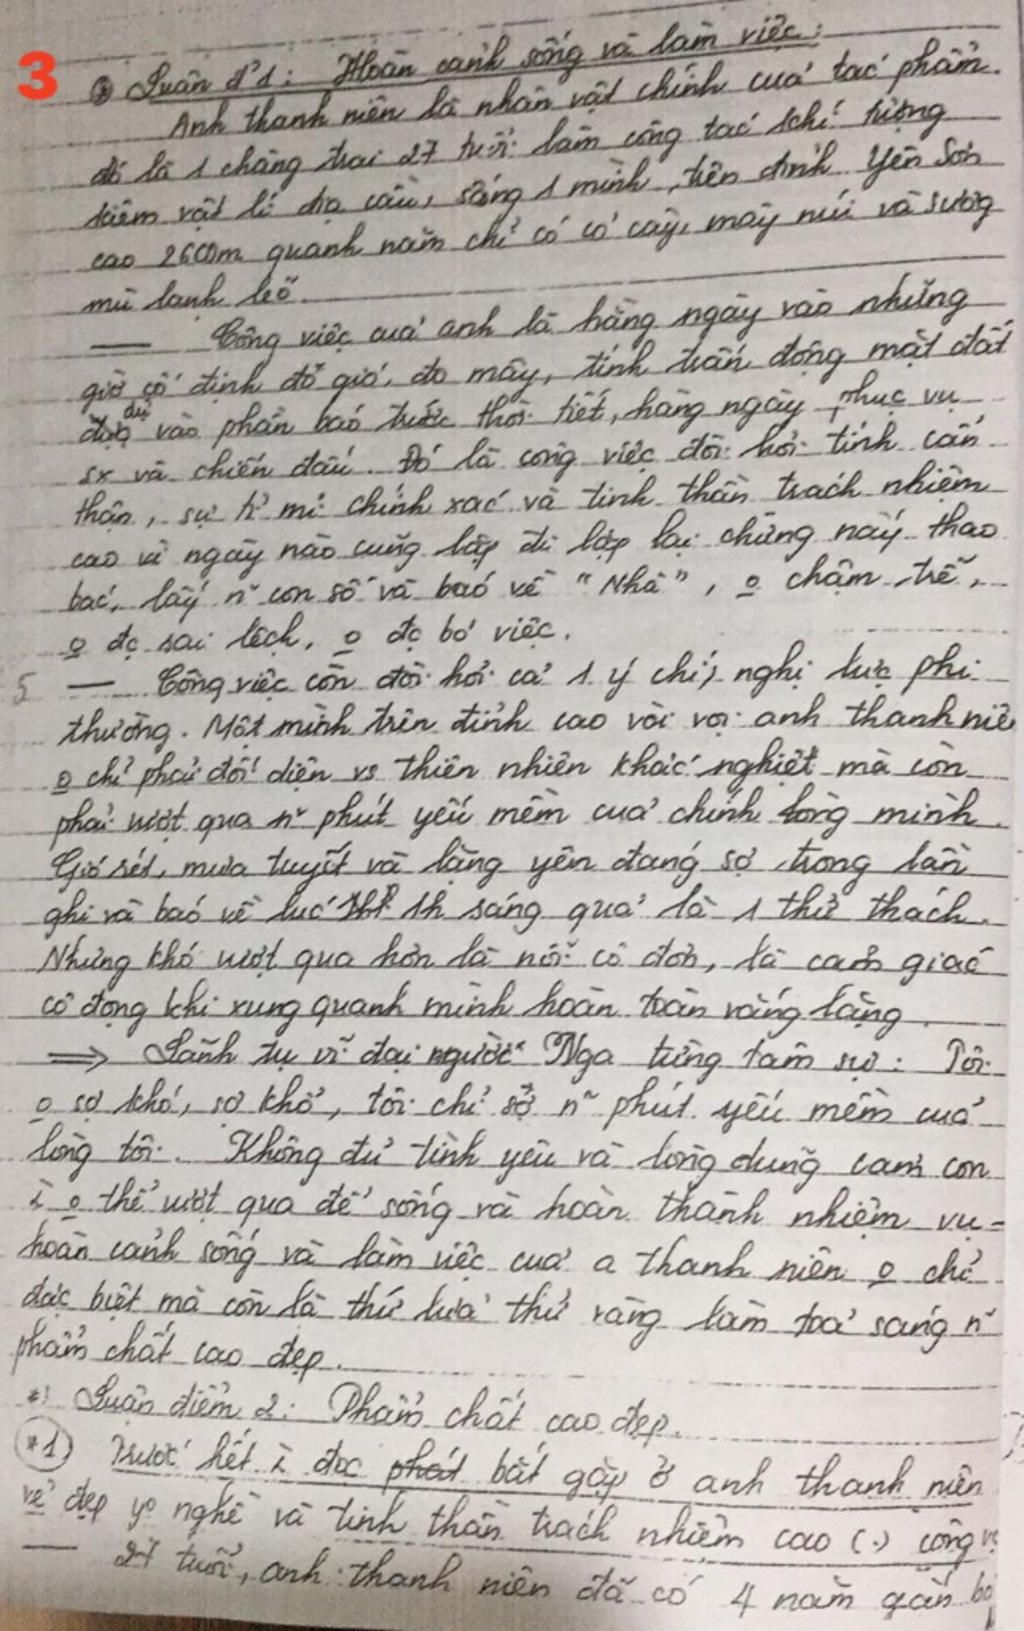 3
⊛ Luận đ' 1: Hoàn cảnh sống và làm việc:
Anh thanh niên là nhân vật chính của tác phẩm.
đó là 1 chàng trai 27 tuổi làm công tác khí tượng
kiêm vật lí địa cầu, sống 1 mình trên đỉnh Yên Sơn
cao 2600m quanh năm chỉ có cỏ cây, mây núi và sương
mù lạnh lẽo.
— Công việc của anh là hằng ngày vào những
giờ cố định đo gió, đo mây, tính trấn động mặt đất
dự vào phần báo trước thời tiết, hàng ngày phục vụ
sx và chiến đấu. Đó là công việc đòi hỏi tính cẩn
thận, sự tỉ mỉ chính xác và tinh thần trách nhiệm
cao vì ngày nào cũng lặp đi lặp lại chừng này thao
tác, lấy n~ con số và báo về "Nhà", o chậm trễ,
o đc sai lệch, o đc bỏ việc.
5 — Công việc còn đòi hỏi cả 1 ý chí, nghị lực phi
thường. Một mình trên đỉnh cao vời vợi anh thanh niê
o chỉ phải đối diện vs thiên nhiên khắc nghiệt mà còn
phải vượt qua n~ phút yếu mềm của chính lòng mình.
Gió rét, mưa tuyết và lặng yên đáng sợ trong lần
ghi và báo về lúc 1h sáng quả là 1 thử thách.
Nhưng khó vượt qua hơn là nỗi cô đơn, là cảm giác
cô đọng khi xung quanh mình hoàn toàn vắng lặng.
⇒ Lãnh tụ vĩ đại người Nga từng tâm sự: Tôi
o sợ khó, sợ khổ, tôi chỉ sợ n~ phút yếu mềm của
lòng tôi. Không đủ tình yêu và lòng dũng cảm con
i o thể vượt qua để sống và hoàn thành nhiệm vụ =
hoàn cảnh sống và làm việc của a thanh niên o chỉ
đặc biệt mà còn là thứ lửa thử vàng làm toả sáng n~
phẩm chất cao đẹp.
*) Luận điểm 2: Phẩm chất cao đẹp.
*1) Trước hết i đọc bắt gặp ở anh thanh niên
vẻ đẹp yo nghề và tinh thần trách nhiệm cao (.) công v
— 27 tuổi, anh thanh niên đã có 4 năm gắn bó